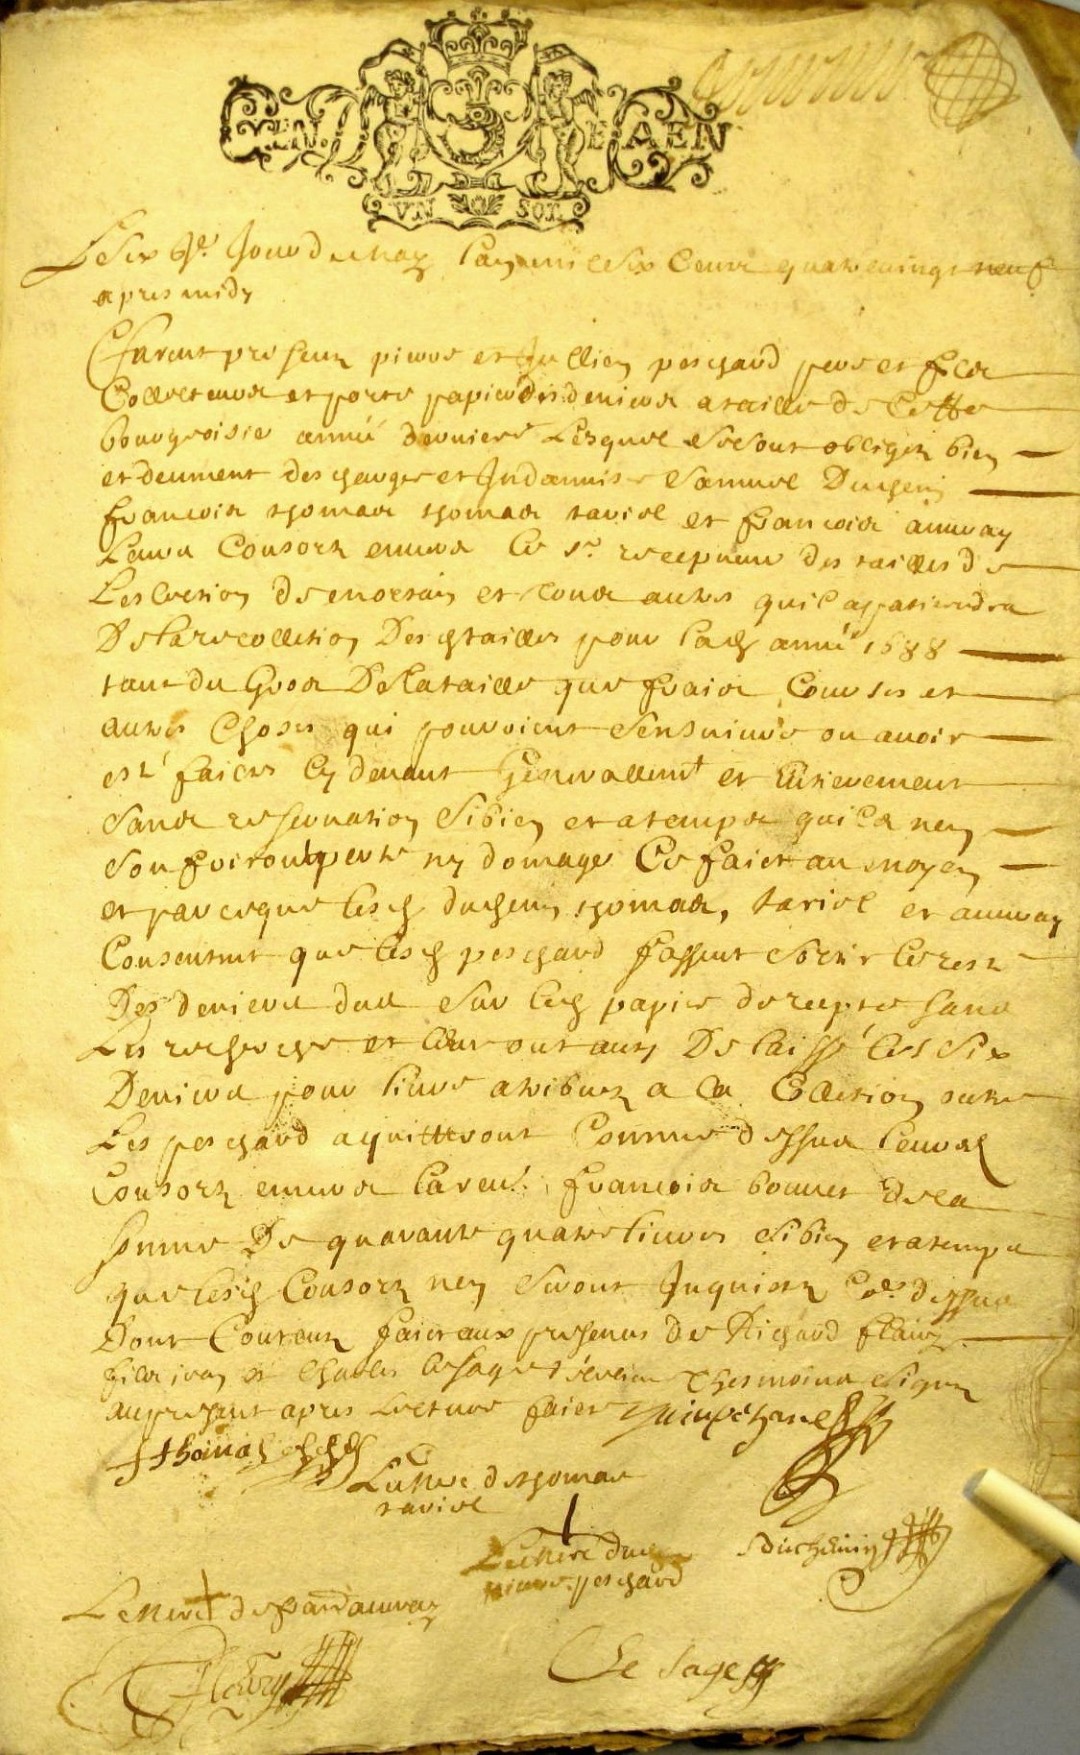 GEN. DE CAEN
VN SOL
Le six.e Jour de may L'an mil six Cents quatre vingt neuf
apres midy
Furent presents pierre et Jullien peschard pere et fils
Collecteurs et porte papier des deniers a taille de Cette
bourgeoisie année derniere Lesquels se sont obligez bien
et deument descharger et Indamniser Samuel Duchemin
francois thomas thomas taviel et francois auuray
Leurs Consorz enuers Le Sr. recepueur des tailles de
Lelection de mortain et tous autres quil apartiendra
De la recollection Des d tailles pour lad année 1688
tant du Gros De la taille que frais Courses et
autres Choses qui pouroient sensuiure ou auoir
esté faicts Cy deuant Generallement et Entierement
Sans reseruation Sibien et a temps quils nen
Souffriront perte ny domage Ce faict au moyen
et parceque lesd duchemin thomas, taviel et auuray
Consentent que lesd peschard fassent les rest
Des deniers dus sur led papier de recepte sans
Les recherche et leur ont aussy De laissé les six
Deniers pour liure atribuez a la Collection outre
Les peschard aquitteront Comme dessus leursd
Consorz enuers la veu. francois bonnet de la
somme De quarante quatre liures sibien et a temps
que lesd Consorz nen seront Inquietez Co.e dessus
Dont Contents faict aux presences de Richard fleury
fils jean et Charles lesage tesmoins signez
au present apres Lecture faict
thomas
La merc de thomas
taviel
La merc dud
pierre peschard
Duchemin
La merc de fran auuray
Fleury
Le Sage